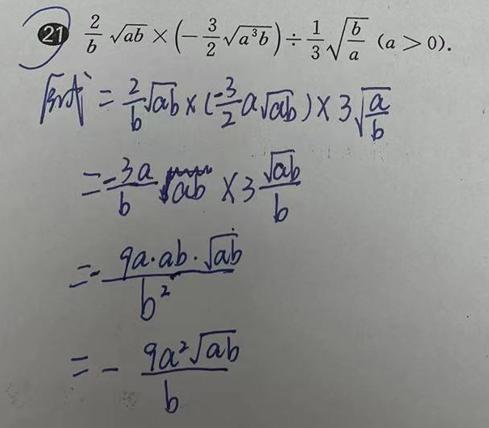 21 \frac{2}{b}\sqrt{ab} × (-\frac{3}{2}\sqrt{a^3b}) ÷ \frac{1}{3}\sqrt{\frac{b}{a}} (a > 0).
原式 = \frac{2}{b}\sqrt{ab} × (\frac{-3}{2}a\sqrt{ab}) × 3\sqrt{\frac{a}{b}}
= \frac{-3a}{b} ab × 3\frac{\sqrt{ab}}{b}
= -\frac{9a·ab·\sqrt{ab}}{b^2}
= -\frac{9a^2\sqrt{ab}}{b}